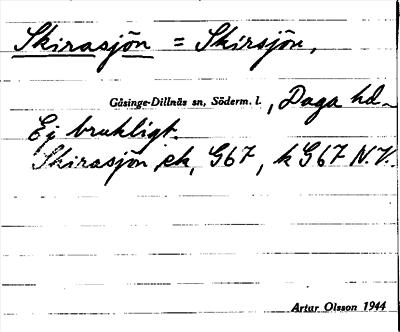 Skirasjön = Skirsjön,
Gåsinge-Dillnäs sn, Söderm. l., Daga hd
Ej brukligt.
Skirasjön ek, G67, k G67 N.V.
Artur Olsson 1944